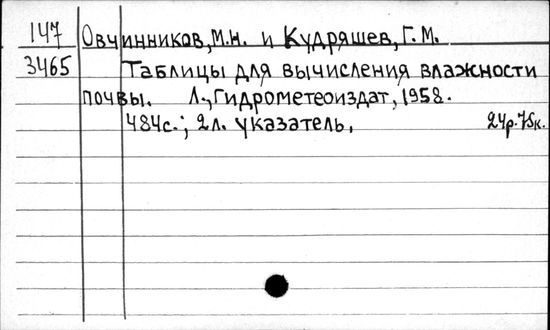 147 Овчинников, М.Н. и Кудряшев, Г.М.
3465 Таблицы для вычисления влажности
почвы. Л., Гидрометеоиздат, 1958.
484с.; 2л. указатель. 24р.75к.